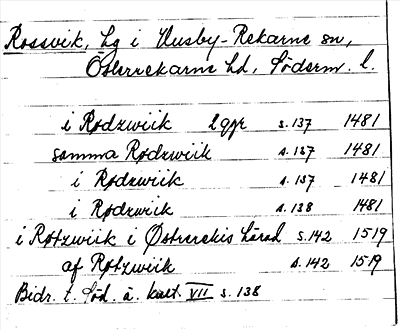 Rossvik, hg i Husby-Rekarne sn,
Österrekarne hd, Söderm. l.
i Rødzwiik 2 gr s. 137 1481
samma Rødzwiik s. 137 1481
i Rødzwiik s. 137 1481
i Rødzwiik s. 138 1481
i Røtzwiik i Østrerekis härad s. 142 1519
af Røtzwiik s. 142 1519
Bidr. t. Söd. ä. kult. VII s. 138